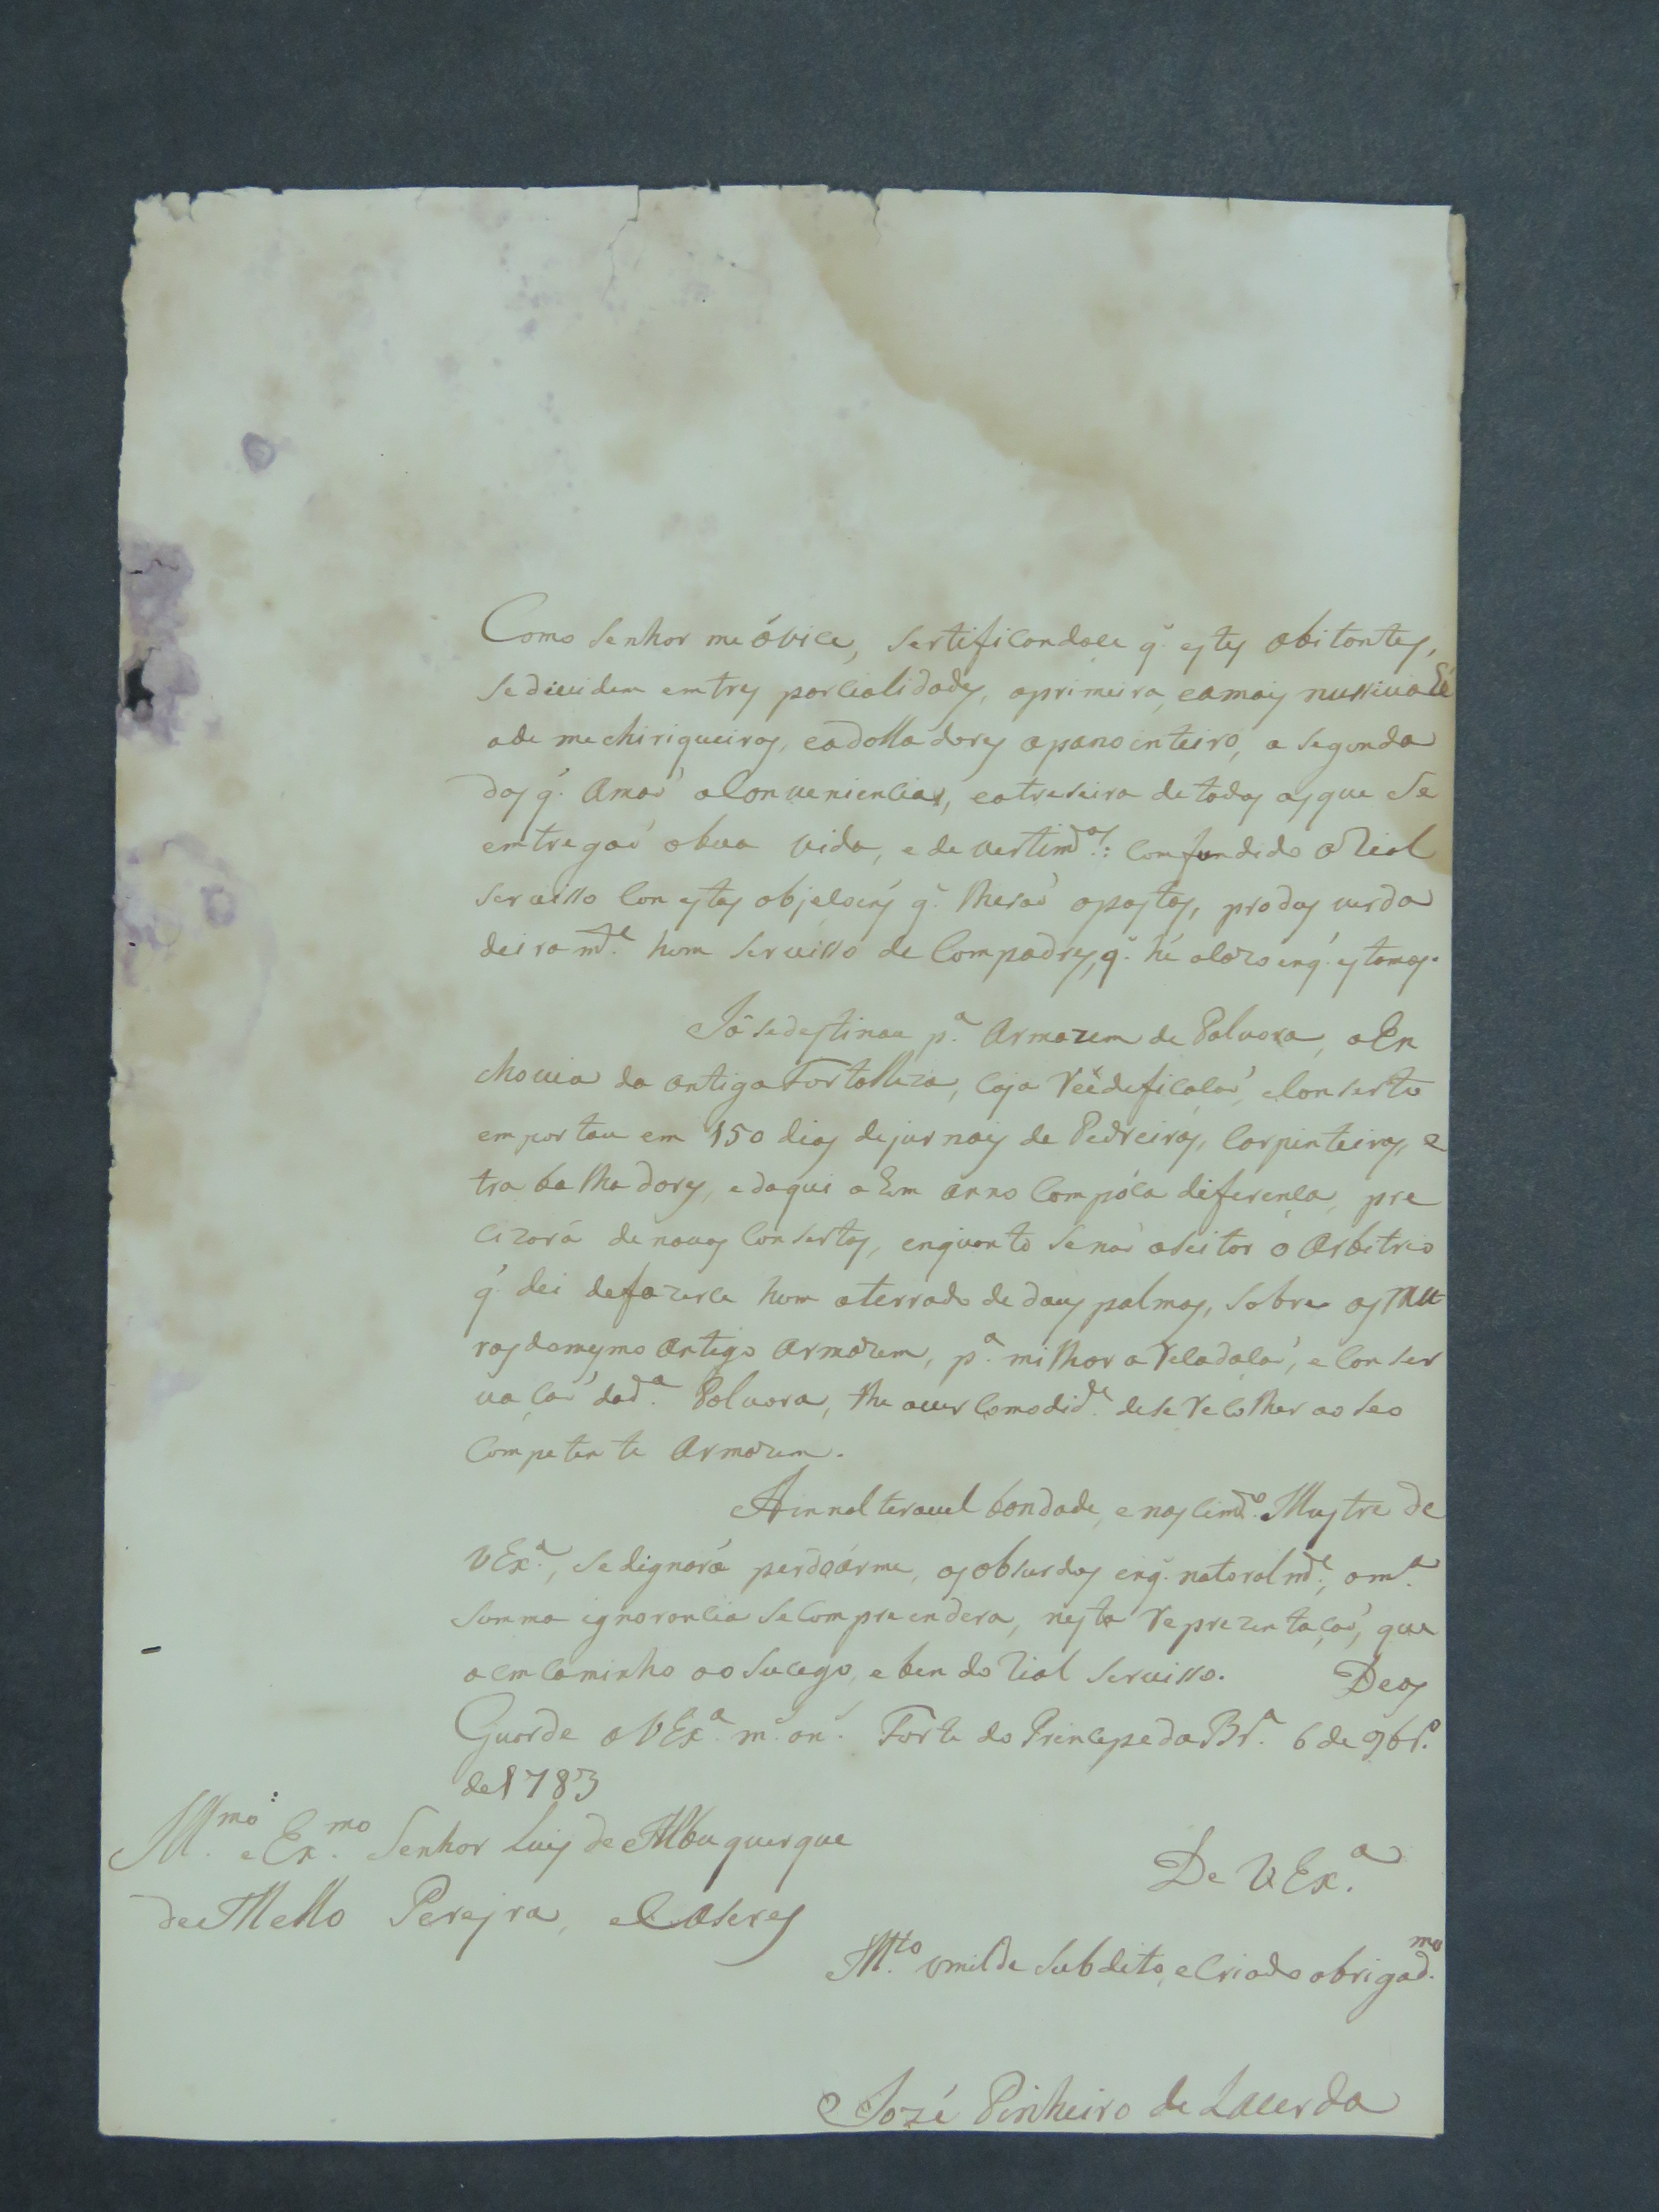 Como Senhor me óvice, sertificandoce q. estes abitantes,
se dividem em tres parcialidades, aprimeira, eamais nussiva hé
ade mechiriqueiros, eadolladores apano inteiro, a segunda
dos q. Amaõ aConveniencias, eatreseira de todos os que Se
entregaõ aboa vida, e devertimd.os: Comfundido o Rial
Servisso Con estes objesois q. lheraõ opostos, produs verda
deiram.te hum servisso de Compadres, q. hé o Cazo enq. estamos.
Já sedestinou p.a Armazem de Polvora, a En
chovia da antiga Fortalleza, Coja Reêdeficasaõ, eConserto
emportou em 150 dias dejurnais de Pedreiros, Carpinteiros, e
trabalhadores, edaqui a hum anno Compóca diferença, pre
cizará denovos Consertos, enquanto Senaõ aseitar o Arbitrio
q. dei defazerce hum aterrado de dous palmos, Sobre os mu
ros domesmo Antigo Armazem, p.a milhor a Veladaçaõ, e Conser
vaçaõ dad.a Polvora, the aver Comodid.e dese Recolher ao Seo
Competente Armazem.
Ainnalteravel bondade, e nascim.to Illustre de
V Ex.a, Sedignará perdoárme, os absurdos enq. natoralm.te, a m.a
summa ignorancia Se Compreendera, nesta Reprezentaçaõ, que
aemcaminho ao Sucego, e ben do Rial Servisso. Deos
Guarde a V Ex.a m.s an.s Forte do Princepe da Br.a 6 de 9br.o
de 1783
Ill.mo e Ex.mo Senhor Luis de Albuquerque
de Mello Perejra, e Caseres
De V Ex.a
M.to Umilde Subdito, e Criado obrigad.mo
Jozé Pinheiro de Lacerda